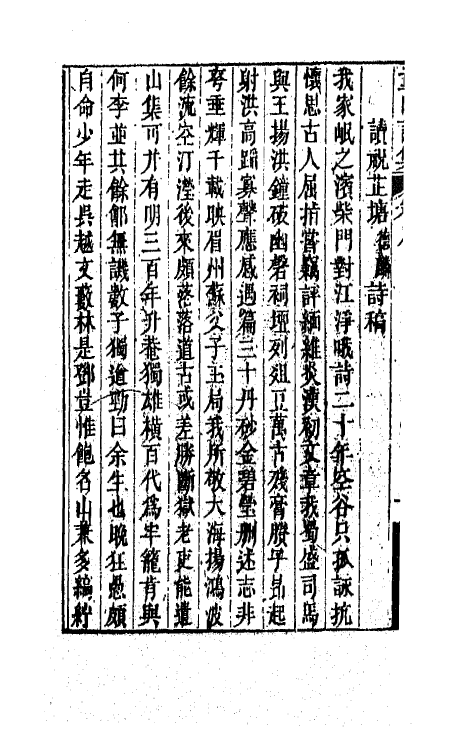 讀祝芷塘德麟詩稿
我家岷之濱柴門對江淨哦詩二十年空谷只孤詠抗
懷思古人屈指嘗竊評緬維炎漢初文章我蜀盛司馬
與王揚洪鐘破幽磬祠壇列俎豆萬古殘膏賸子昂起
射洪高蹈寡聲應感遇篇三十丹砂金碧瑩刪述志非
夸垂輝千載映眉州蘇父子玉局我所敬大海揚鴻波
餘流空汀瀅後來頗落落道古或差勝斷獄老吏能遺
山集可并有明三百年升菴獨雄橫百代為牢籠肯與
何李並其餘鄶無譏數子獨遒勁曰余生也晚狂愚頗
自命少年走吳越文藪林是鄧豈惟飽名山兼多縞紵